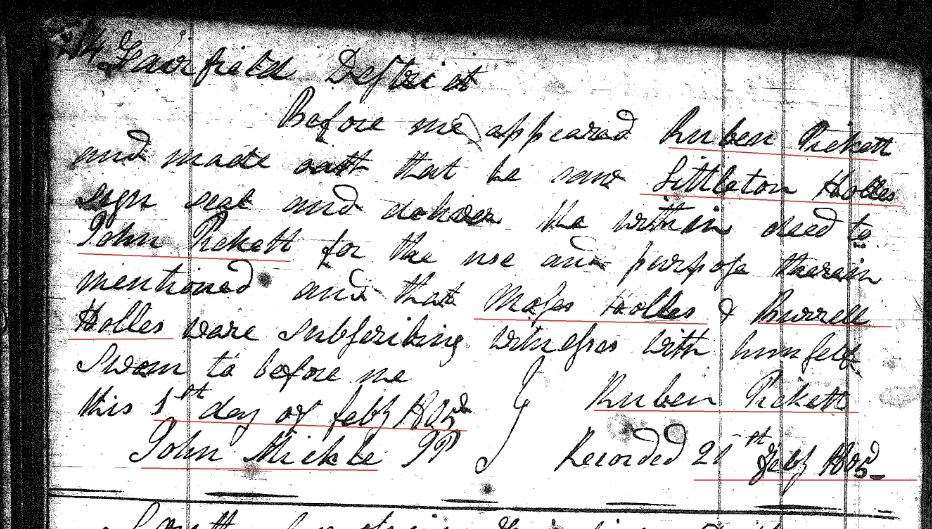 Fairfield District
Before me appeared Ruben Pickett
and made oath that he saw Littleton Holles
sign seal and deliver the within deed to
John Pickett for the use and purpose therein
mentioned and that Moses Holles & Burrell
Holles ware subscribing witnesses with himself
Sworn to before me
this 1st day of feby Ruben Pickett
John Mickle JP Recorded 21st Feby